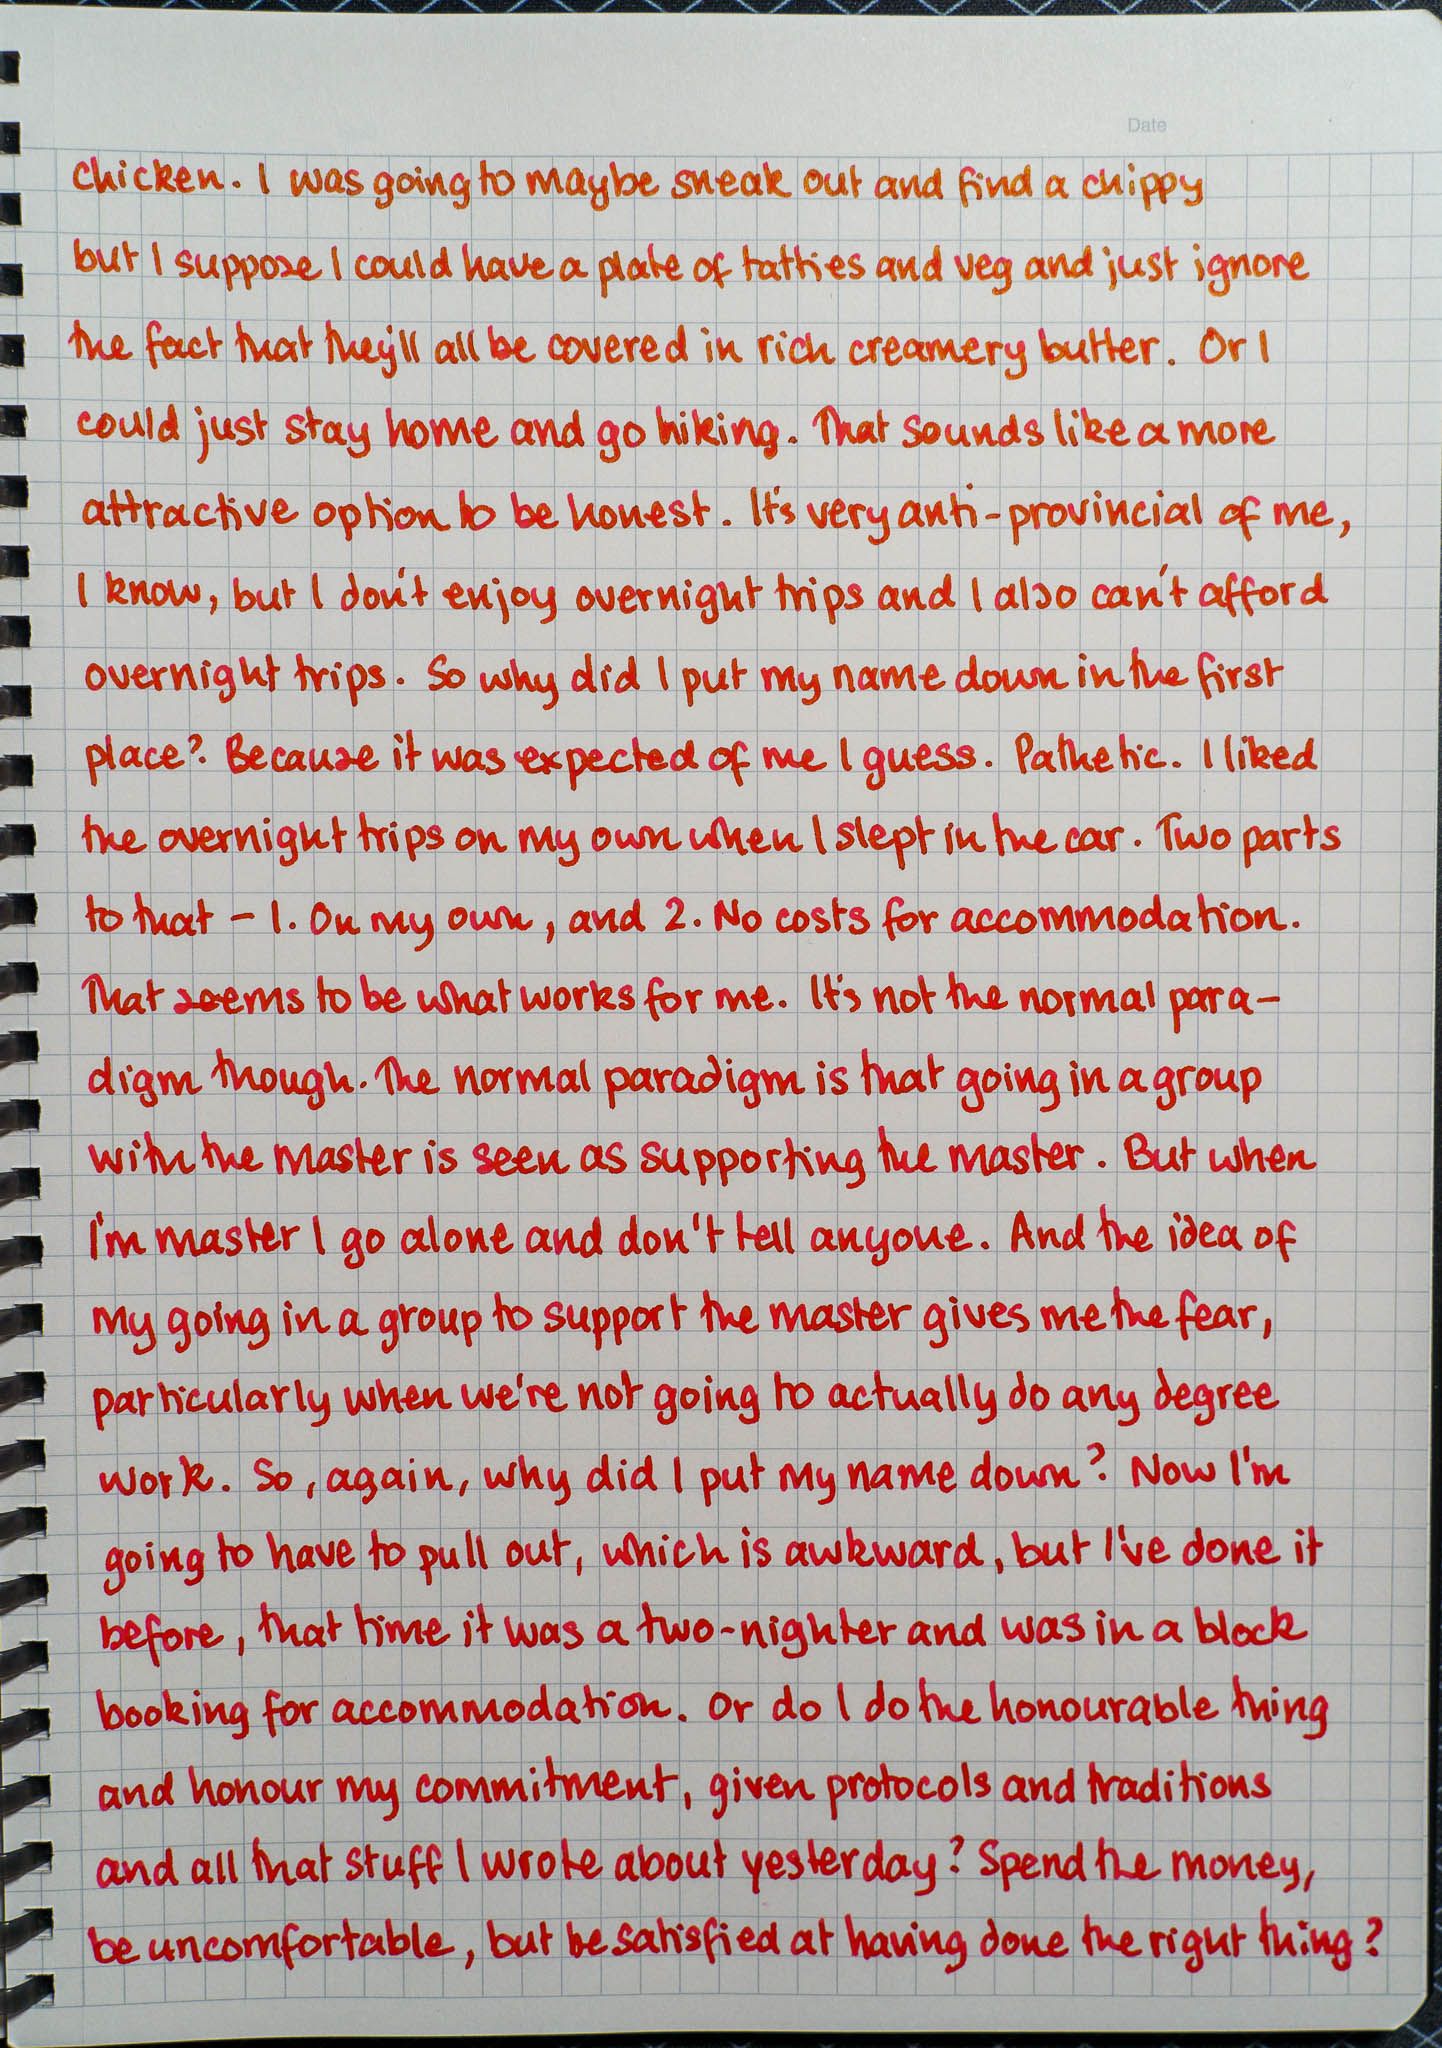 Date
chicken. I was going to maybe sneak out and find a chippy
but I suppose I could have a plate of tatties and veg and just ignore
the fact that they'll all be covered in rich creamery butter. Or I
could just stay home and go hiking. That sounds like a more
attractive option to be honest. It's very anti-provincial of me,
I know, but I don't enjoy overnight trips and I also can't afford
overnight trips. So why did I put my name down in the first
place? Because it was expected of me I guess. Pathetic. I liked
the overnight trips on my own when I slept in the car. Two parts
to that - 1. On my own, and 2. No costs for accommodation.
That seems to be what works for me. It's not the normal para-
digm though. The normal paradigm is that going in a group
with the master is seen as supporting the master. But when
I'm master I go alone and don't tell anyone. And the idea of
my going in a group to support the master gives me the fear,
particularly when we're not going to actually do any degree
work. So, again, why did I put my name down? Now I'm
going to have to pull out, which is awkward, but I've done it
before, that time it was a two-nighter and was in a block
booking for accommodation. Or do I do the honourable thing
and honour my commitment, given protocols and traditions
and all that stuff I wrote about yesterday? Spend the money,
be uncomfortable, but be satisfied at having done the right thing?